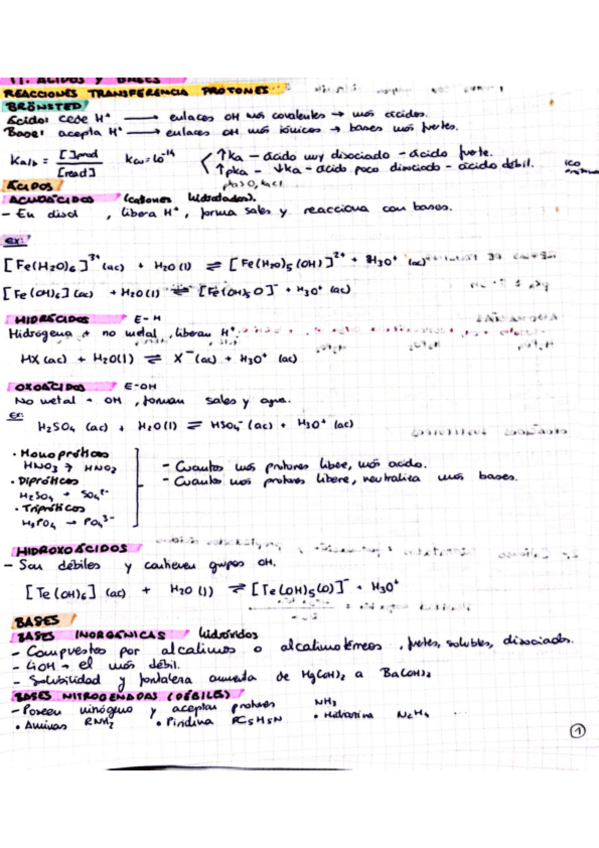 11. ACIDOS Y BASES
REACCIONES TRANSFERENCIA PROTONES
BRÖNSTED
Ácido: cede H⁺ ⟶ enlaces OH más covalentes → más ácidos.
Base: acepta H⁺ ⟶ enlaces OH más iónicos → bases más fuertes.
Ka/b = [ ]prod / [reac] Kw=10⁻¹⁴ ↑Ka - ácido muy disociado - ácido fuerte.
↑pka - ↓ka - ácido poco disociado - ácido débil.
pka>0, ka<1
ÁCIDOS
ACUOÁCIDOS (cationes hidratados).
- En disol , libera H⁺, forma sales y reacciona con bases.
ex:
[Fe(H2O)6]³⁺ (ac) + H2O (l) ⇌ [Fe(H2O)5(OH)]²⁺ + H3O⁺ (ac)
[Fe(OH)6] (ac) + H2O (l) ⇌ [Fe(OH)5O]⁻ + H3O⁺ (ac)
HIDRÁCIDOS E-H
Hidrógeno + no metal, liberan H⁺.
HX (ac) + H2O(l) ⇌ X⁻ (ac) + H3O⁺ (ac)
OXOÁCIDOS E-OH
No metal - OH, forman sales y agua.
Ex:
H2SO4 (ac) + H2O (l) ⇌ HSO4⁻ (ac) + H3O⁺ (ac)
· Monopróticos
HNO3 → HNO2
· Dipróticos
H2SO4 → SO4²⁻
· Tripróticos
H3PO4 → PO4³⁻
- Cuantos más protones libere, más ácido.
- Cuantos más protones libere, neutraliza más bases.
HIDROXOÁCIDOS
- Son débiles y contienen grupos OH.
[Te(OH)6] (ac) + H2O (l) ⇌ [Te(OH)5(O)]⁻ + H3O⁺
BASES
BASES INORGÁNICAS hidróxidos
- Compuestos por alcalinos o alcalinotérreos, fuertes, solubles, disociados.
- LiOH → el más débil.
- Solubilidad y fortaleza aumenta de Mg(OH)2 a Ba(OH)2
BASES NITROGENADAS (DÉBILES)
- Poseen nitrógeno y aceptan protones NH3
• Aminas RNH2 • Piridina C5H5N • Hidracina N2H4
1